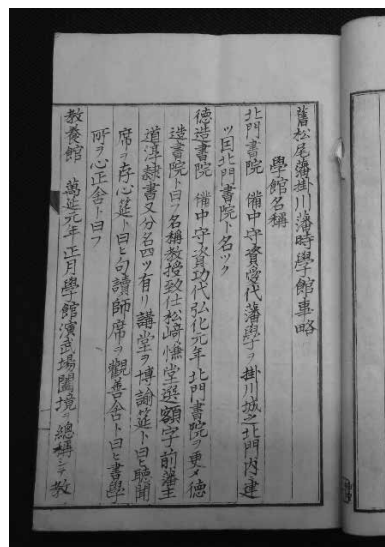 舊松尾藩掛川藩時學館事略
學館名稱
北門書院 備中守資愛代藩學ヲ掛川城之北門内ニ建
ツ因北門書院ト名ツク
德造書院 備中守資功代弘化元年北門書院ヲ更メ德
造書院ト曰フ名稱教授致仕松﨑慊堂選額字前藩主
道淳隷書又分名四ツ有リ講堂ヲ博論筵ト曰ヒ聽聞
席ヲ存心筵ト曰ヒ句讀師席ヲ觀善舍ト曰ヒ書學
所ヲ心正舍ト曰フ
教養館 萬延元年正月學館演武場闔境ヲ總稱シテ教